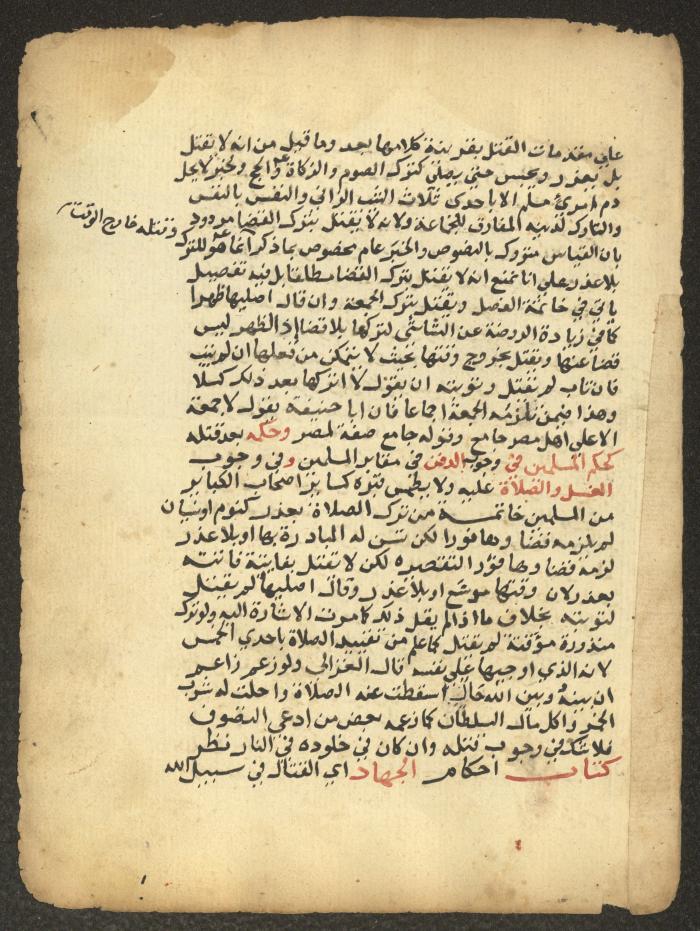 علي مقدمات القتل بقرينة كلامها بعد وما قيل من انه لا يقتل
بل يعزر ويحبس حتي يصلي كترك الصوم والزكاة والحج ولخبر لا يحل
دم امرئ مسلم الا باحدى ثلاث الثيب الزاني والنفس بالنفس
والتارك لدينه المفارق للجماعة ولانه لا يقتل بترك القضا مردود
وقتله خارج الوقت
بان القياس متروك بالنصوص والخبر عام مخصوص بما ذكر انما هو للترك
بلا عذر علي انا نمنع انه لا يقتل بترك القضا مطلقا بل فيه تفصيل
ياتي في خاتمة الفصل ويقتل بترك الجمعة وان قال اصليها ظهرا
كما في زيادة الروضة عن الشاشي لتركها بلا قضا إذ الظهر ليس
قضا عنها ويقتل بخروج وقتها بحيث لا يتمكن من فعلها ان لم يتب
فان تاب لم يقتل وتوبته ان يقول لا اتركها بعد ذلك كسلا
وهذا فيمن تلزمه الجمعة اجماعا فان ابا حنيفة يقول لا جمعة
الا علي اهل مصر جامع وقوله جامع صفة لمصر وحكمه بعد قتله
كحكم المسلمين في وجوب الدفن في مقابر المسلمين وفي وجوب
الغسل والصلاة عليه ولا يطمس قبره كسائر اصحاب الكبائر
من المسلمين خاتمة من ترك الصلاة بعذر كنوم او نسيان
لم يلزمه قضاوها فورا لكن تسن له المبادرة بها او بلا عذر
لزمه قضاوها فورا لتقصيره لكن لا يقتل بفايتة فاتته
بعذر لان وقتها موسع او بلا عذر وقال اصليها لم يقتل
لتوبته بخلاف ما اذا لم يقل ذلك كما مرت الاشارة اليه ولو ترك
منذورة مؤقتة لم يقتل كما علم من تقييد الصلاة باحدي الخمس
لانه الذي اوجبها علي نفسه قال الغزالي ولو زعم زاعم
ان بينه وبين الله حال اسقطت عنه الصلاة واحلت له شرب
الخمر واكل مال السلطان كما زعمه بعض من ادعي التصوف
فلا شك في وجوب قتله وان كان في خلوده في النار نظر
كتاب احكام الجهاد اي القتال في سبيل الله